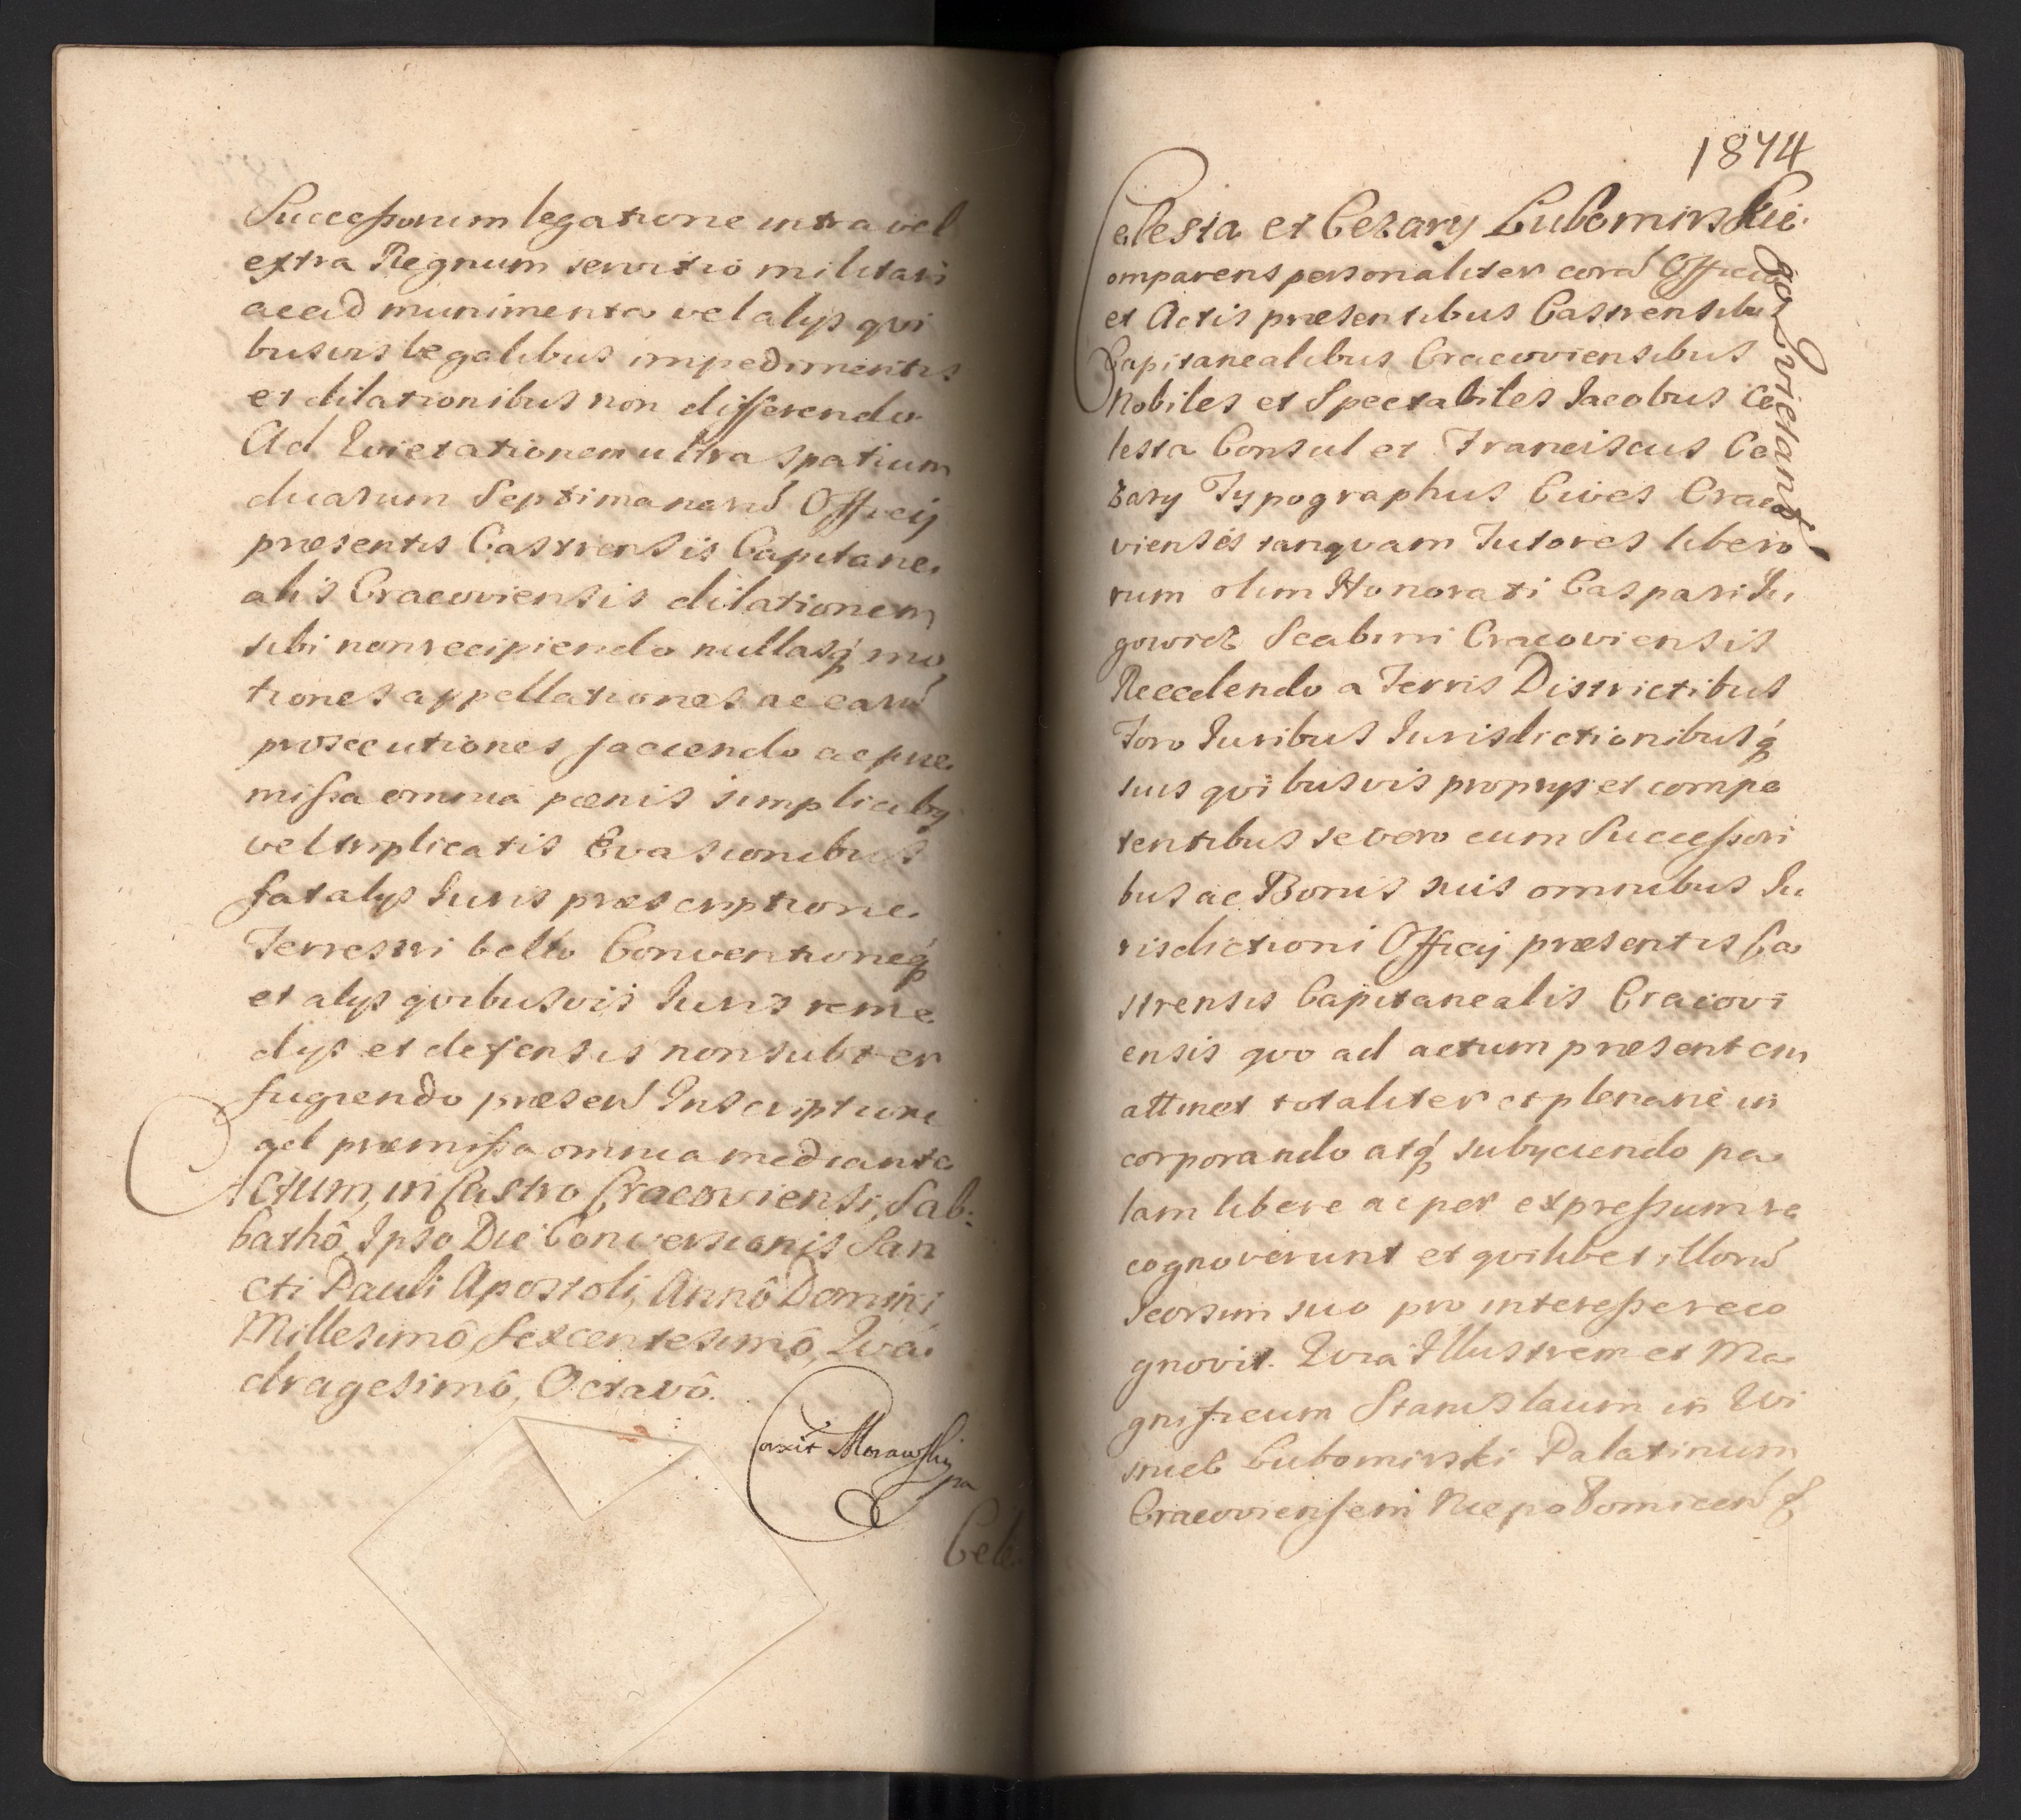 Successorum legatione intra vel
extra Regnum servitio militari
aeead munimenta vel alijs qvi
busvis legalibus impedimentis
et dilationibus non differendo
Ad Qvietationem ultra spatium
duarum Septimanarũ Officij
præsentis Castrensis Capitane
alis Cracoviensis dilationem
sibi non recipiendo nullasq́ mo
tiones appellationes ac earũ
prosecutiones faciendo ac præ
missa omnia pœnis simplicibq
vel triplicatis Evasionibus
fatalijs Iuris præscriptione
Terrestri bello Conventioneq́
et alijs qvibusvis Iuris reme
dijs et defensis non subter
fugiendo præsen Inscriptioni
ad præmissa omnia mediante
Actum, in Castro Cracoviensi, Sab:
bathô, Ipso Die Conversionis San
cti Pauli Apostoli, Annô Domini,
Millesimô, Sexcentesimô, Qva
dragesimô, Octavô.
Correxit Morawski
pa
Cele
1874
Celesta et Cezary Lubomirskie
go Qvietant
Comparens personaliter corã Officio
et Actis præsentibus Castrensibus
Capitanealibus Cracoviensibus
Nobiles et Spectabiles Iacobus Ce
lesta Consul et Franciscus Ce
zary Typographus Cives Craco
vienses tanqvam Tutores libero
rum olim Honorati Caspari Iu
gowicz Scabini Cracoviensis
Recedendo a Terris Districtibus
Foro Iuribus Iurisdictionibusq́
suis qvibusvis proprijs et compe
tentibus se vero cum Successori
bus ac Bonis suis omnibus Iu
risdictioni Officij præsentis Ca
strensis Capitanealis Cracovi
ensis qvo ad actum præsentem
attinet totaliter et plenarie in
corporando atq́ subijciendo pa
lam libere ac per expressum re
cognoverunt et qvilibet illorũ
seorsim suo pro interesse reco
gnovit. Qvia Illustrem et Ma
gnificum Stanislaum in Wi
snicz Lubomirski Palatinum
Cracoviensem Niepolomicen &